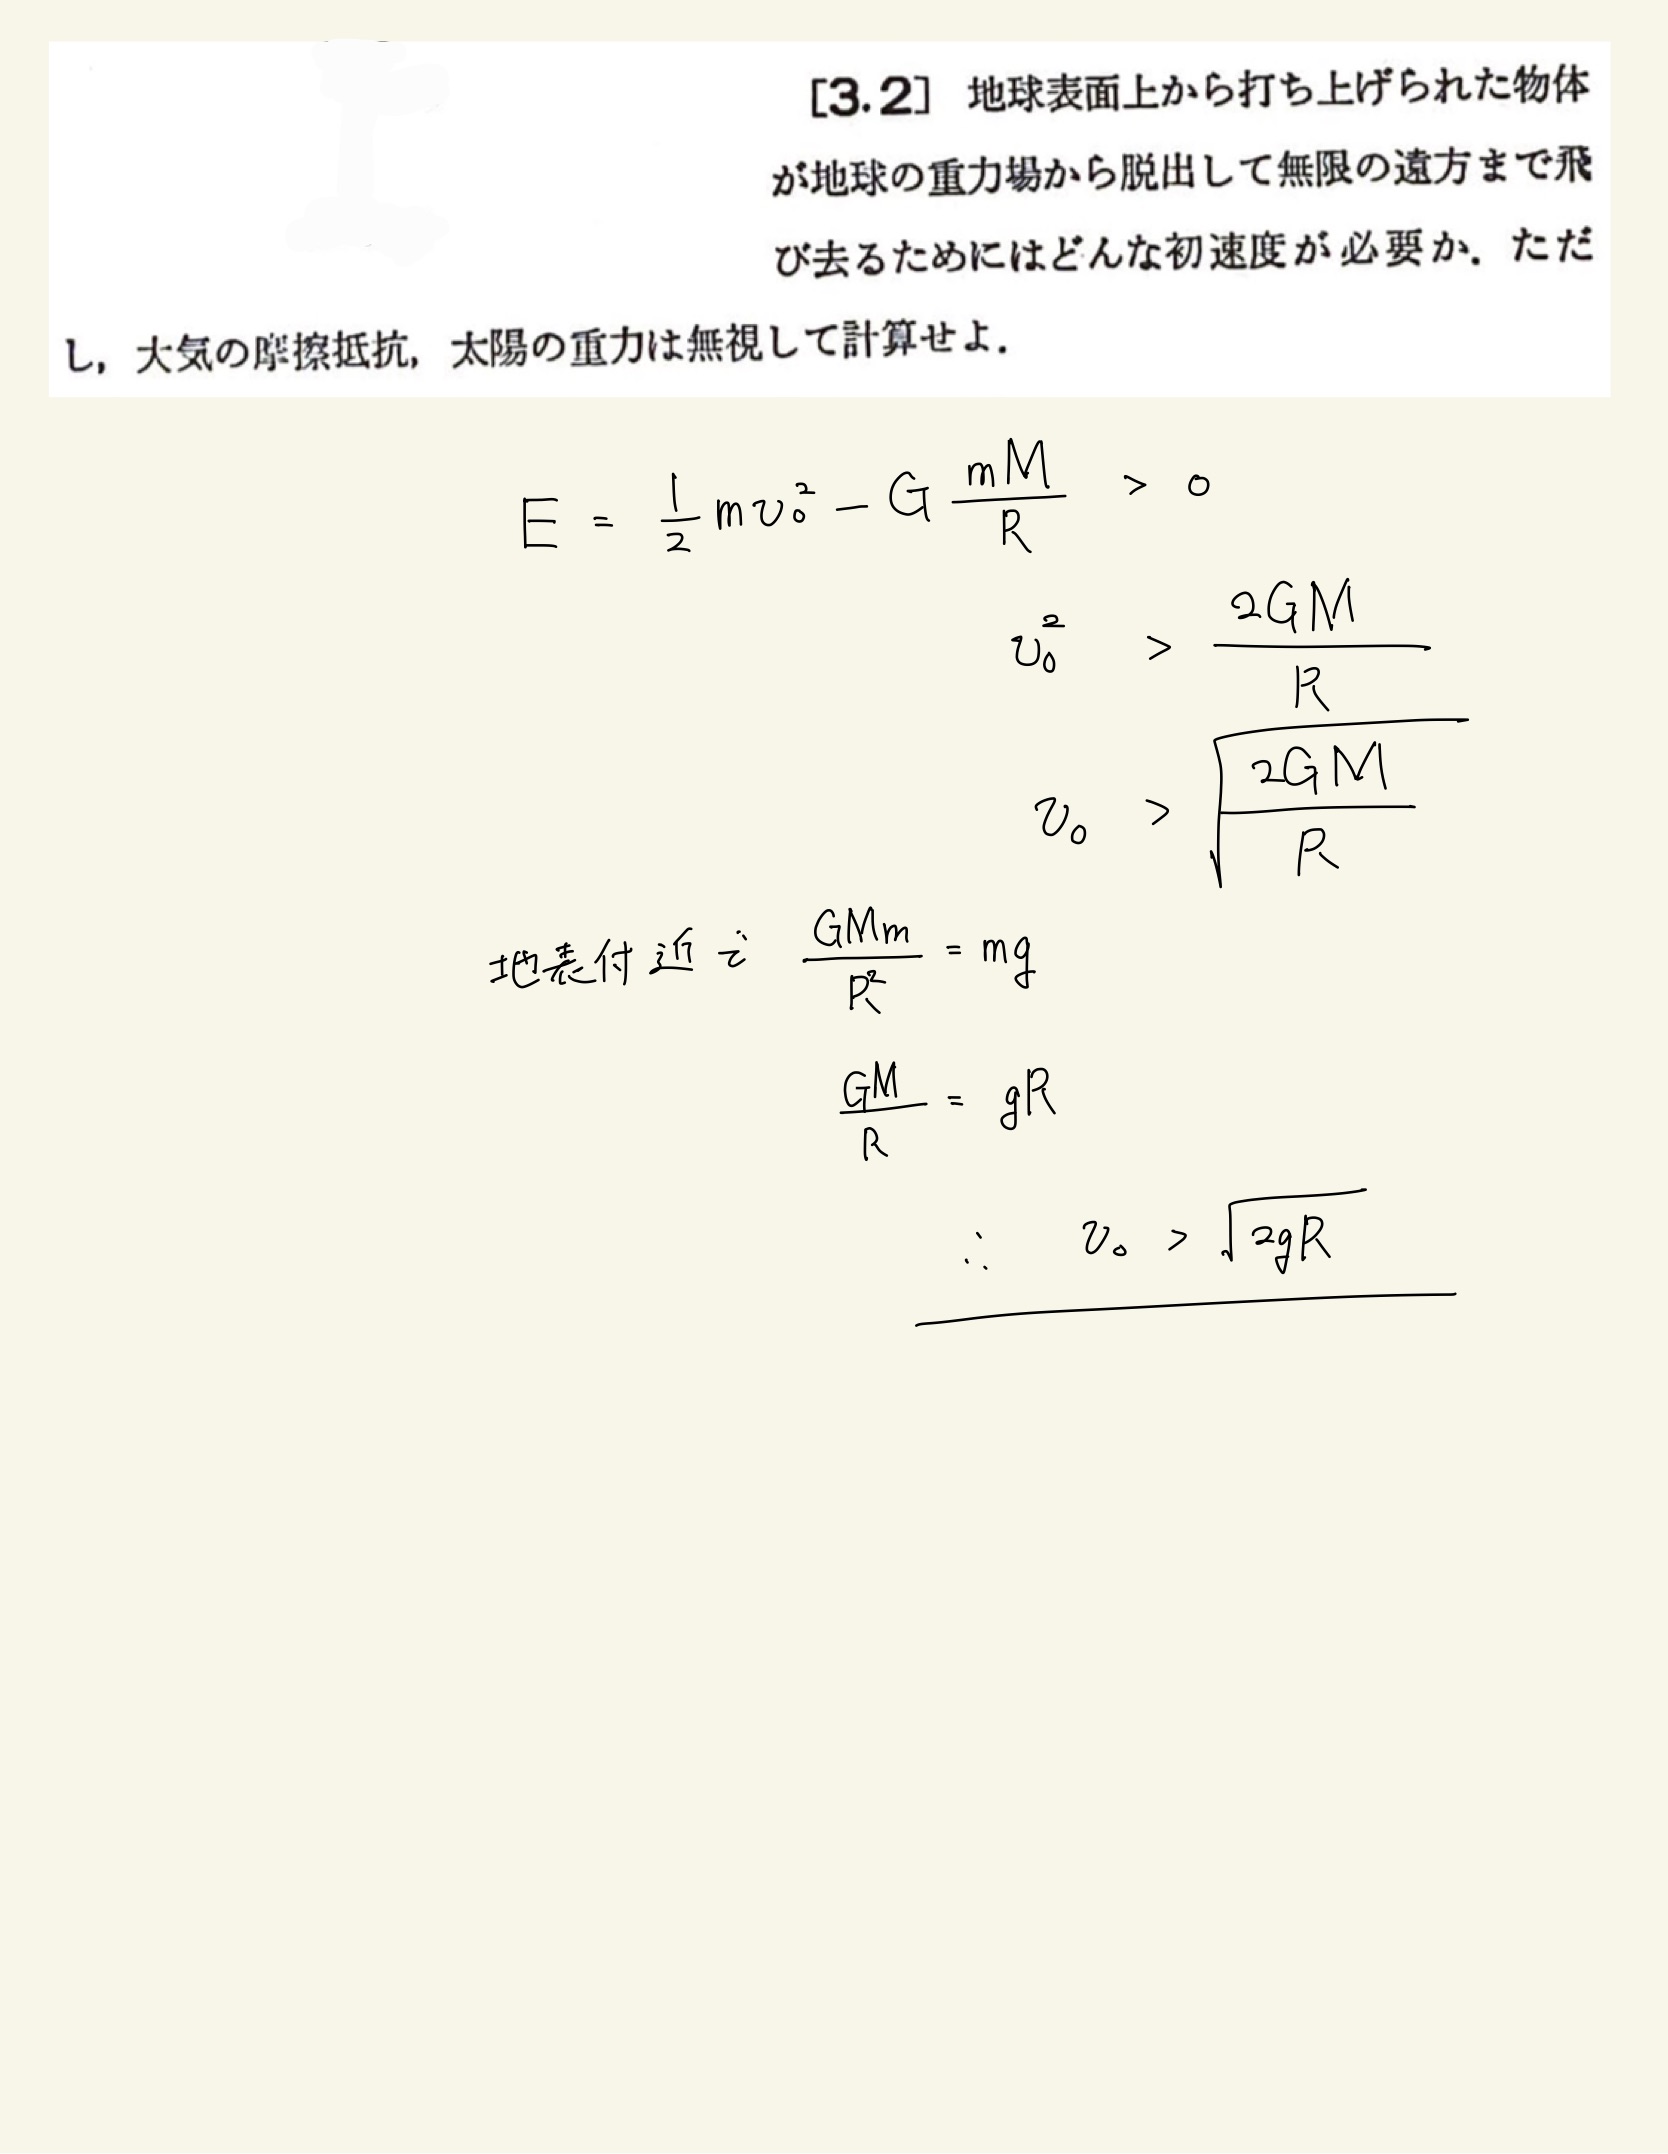 [3.2] 地球表面上から打ち上げられた物体
が地球の重力場から脱出して無限の遠方まで飛
び去るためにはどんな初速度が必要か．ただ
し，大気の摩擦抵抗，太陽の重力は無視して計算せよ．
E = 1/2 mv₀² − G mM/R > 0
v₀² > 2GM/R
v₀ > √(2GM/R)
地表付近で GMm/R² = mg
GM/R = gR
∴ v₀ > √(2gR)